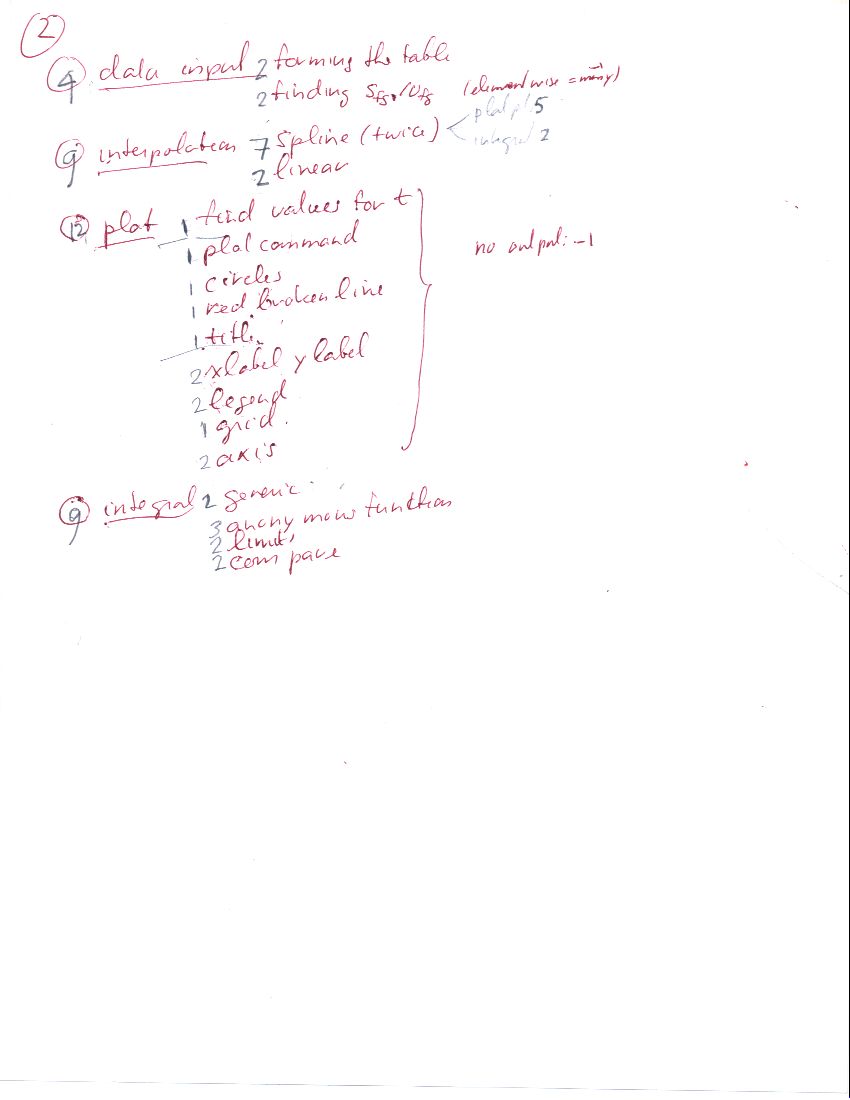 2
4 data input 2 forming the table
2 finding Sfg, Ufg (elementwise = many)
9 interpolation 7 spline (twice) plot pt 5
integral 2
2 linear
12 plot 1 find values for t
1 plot command
1 circles
1 red broken line
1 title
2 xlabel y label
2 legend
1 grid.
2 axis
no output: -1
9 integral 2 generic
3 anonymous function
2 limits
2 compare